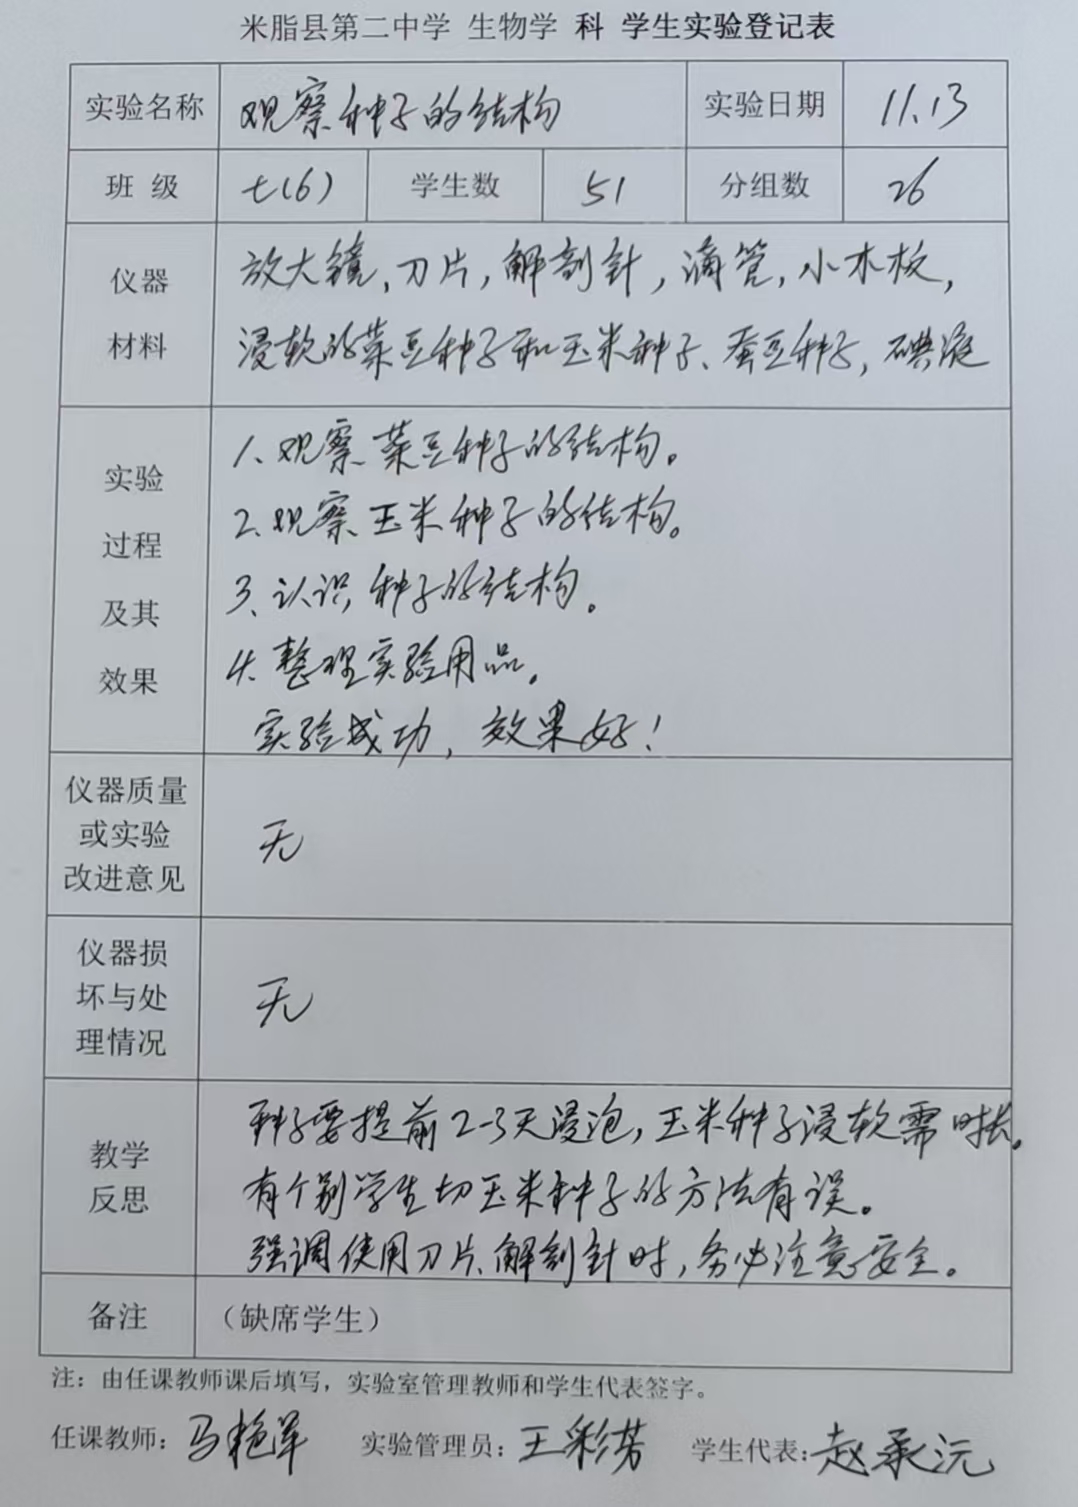 米脂县第二中学 生物学 科 学生实验登记表
实验名称 观察种子的结构 实验日期 11.13
班 级 七(6) 学生数 51 分组数 26
仪器 材料
放大镜,刀片,解剖针,滴管,小木板,
浸软的菜豆种子和玉米种子、蚕豆种子,碘液
实验 过程 及其 效果
1、观察菜豆种子的结构。
2、观察玉米种子的结构。
3、认识种子的结构。
4、整理实验用品。
实验成功,效果好!
仪器质量
或实验 无
改进意见
仪器损
坏与处 无
理情况
教学
反思
种子要提前2-3天浸泡,玉米种子浸软需时长。
有个别学生切玉米种子的方法有误。
强调使用刀片、解剖针时,务必注意安全。
备注 (缺席学生)
注:由任课教师课后填写,实验室管理教师和学生代表签字。
任课教师: 马艳军 实验管理员: 王彩芳 学生代表: 赵承沅